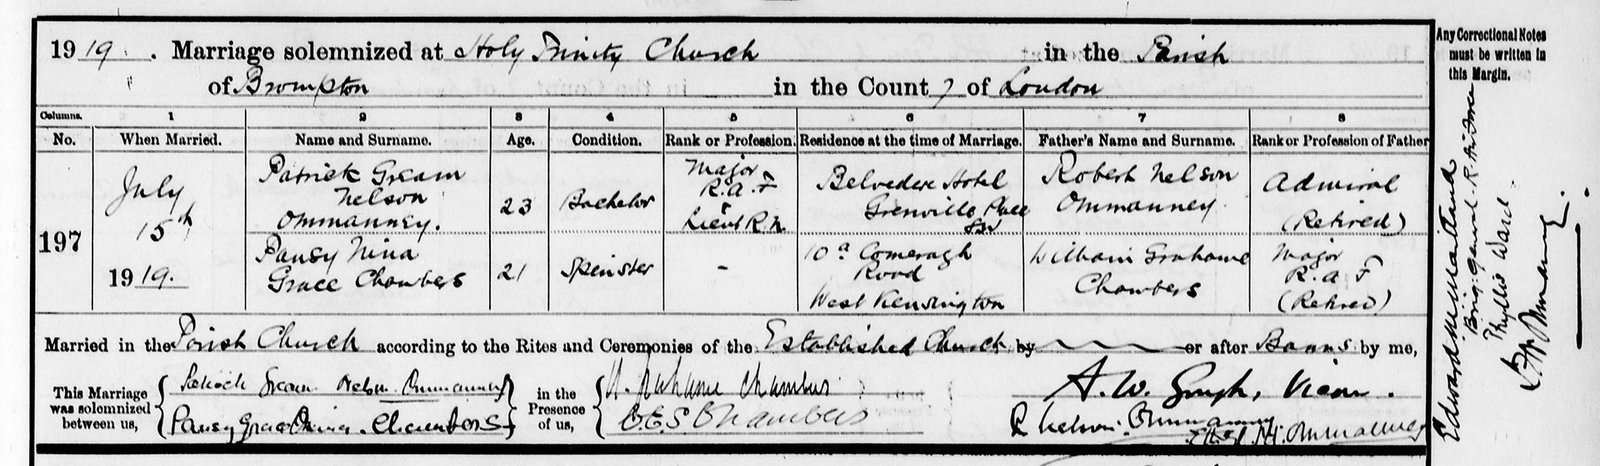 1919. Marriage solemnized at Holy Trinity Church in the Parish
of Brompton in the County of London
Columns. 1 2 3 4 5 6 7 8
No. When Married. Name and Surname. Age. Condition. Rank or Profession. Residence at the time of Marriage. Father's Name and Surname. Rank or Profession of Father
197
July
15th
1919.
Patrick Gream
Nelson
Ommanney.
23
Bachelor
Major
R.A.F
Lieut R.N.
Belvedere Hotel
Grenville Place
Robert Nelson
Ommanney.
Admiral
(Retired)
Pansy Nina
Grace Chambers
21
Spinster
-
10a Comeragh
Road
West Kensington
William Grahame
Chambers
Major
R.A.F
(Retired)
Married in the Parish Church according to the Rites and Ceremonies of the Established Church by or after Banns by me,
This Marriage
was solemnized
between us,
Patrick Gream Nelson Ommanney
Pansy Grace Nina Chambers
in the
Presence
of us,
W. Grahame Chambers
C.E.S. Chambers
A. W. Gough, Vicar.
R Nelson Ommanney
Ethel M. Ommanney
Any Correctional Notes
must be written in
this Margin.
Edward M Maitland
Brig: General R. Air Force
Phyllis Ward.